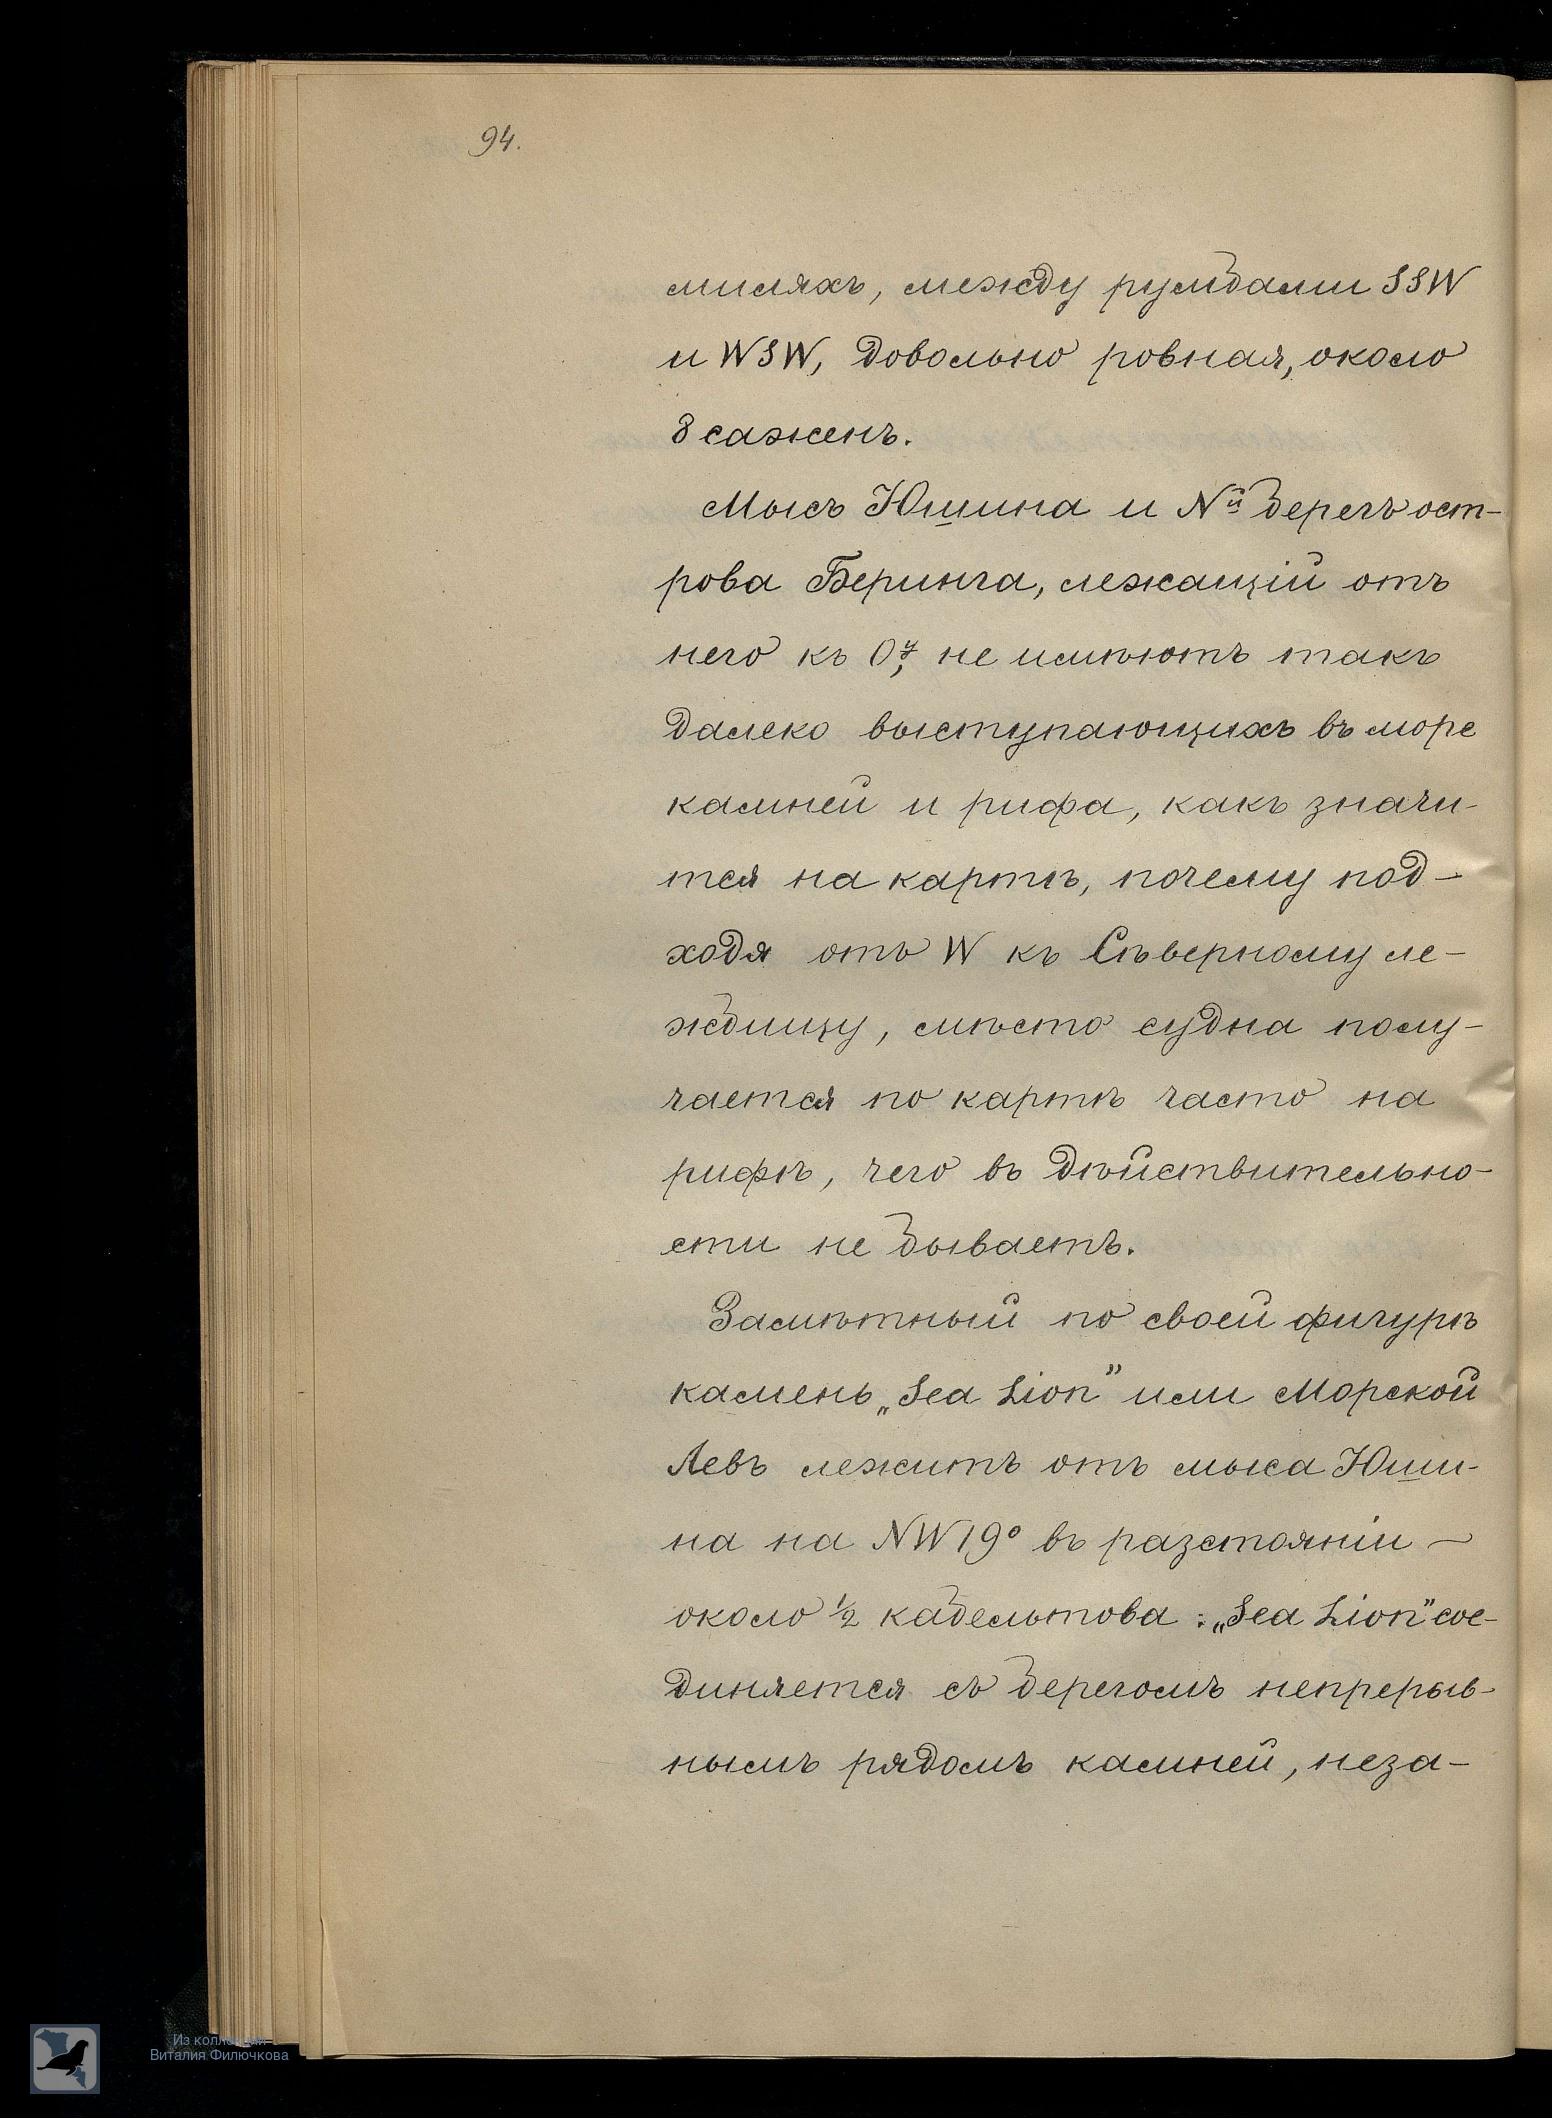 94.
миляхъ, между румбами SSW
и WSW, довольно ровная, около
8 сажень.
Мысъ Юшина и Nй берегъ ост-
рова Беринга, лежащій отъ
него къ Оу, не имѣютъ такъ
далеко выступающихъ въ море
камней и рифа, какъ значи-
тся на картѣ, почему под-
ходя отъ W къ Сѣверному ле-
жбищу, мѣсто судна полу-
чается по картѣ часто на
рифѣ, чего въ дѣйствительно-
сти не бываетъ.
Замѣтный по своей фигурѣ
камень „Sea Lion” или Морской
Левъ лежитъ отъ мыса Юши-
на на NW 19° въ разстояніи —
около ½ кабельтова: „Sea Lion" сое-
диняется съ берегомъ непрерыв-
нымъ рядомъ камней, неза-
Из коллекции
Виталия Филючкова